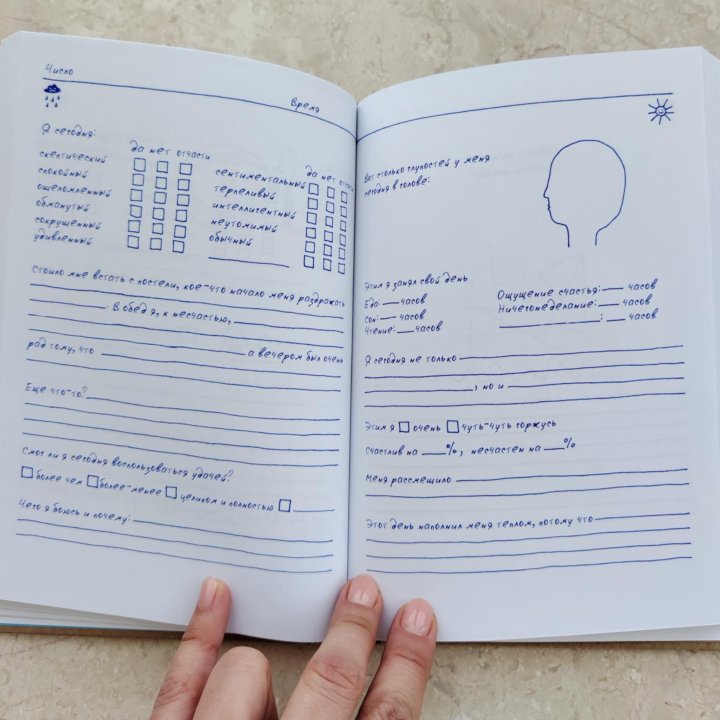 Число
Время
Я сегодня:
да нет отчасти
скептический
спокойный
ошеломленный
обманутый
сокрушенный
удивленный
да нет отчасти
сентиментальный
терпеливый
интеллигентный
неутомимый
обычный
Стоило мне встать с постели, кое-что начало меня раздражать
. В обед я, к несчастью,
рад тому, что а вечером был очень
Еще что-то?
Смог ли я сегодня воспользоваться удачей?
более чем более-менее целиком и полностью
Чего я боюсь и почему:
Вот столько глупостей у меня
сегодня в голове:
Этим я занял свой день
Еда: часов
Сон: часов
Чтение: часов
Ощущение счастья: часов
Ничегонеделание: часов
: часов
Я сегодня не только
, но и
Этим я очень чуть-чуть горжусь
счастлив на %, несчастен на %
Меня рассмешило
Этот день наполнил меня теплом, потому что